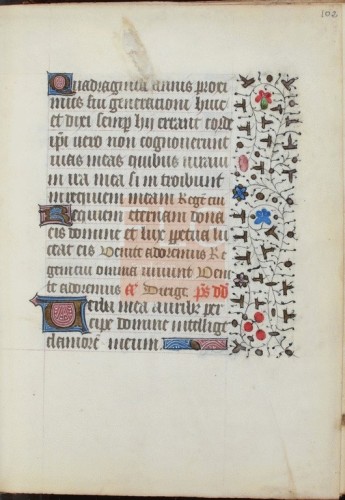 102
Quadraginta annis proxi
mus fui generationi huic
et dixi semp hii errant corde
ipi vero non cognouerunt
uias meas quibus iuraui
in ira mea si introibunt
in requiem meam Rege cui
Requiem eternam dona
eis domine et lux perpetua lu
ceat eis Venite adoremus Re
gem cui omnia uiuunt Veni
te adoremus añ Dirige ps dd
Verba mea auribus per
cipe domine intellige
clamorẽ meum